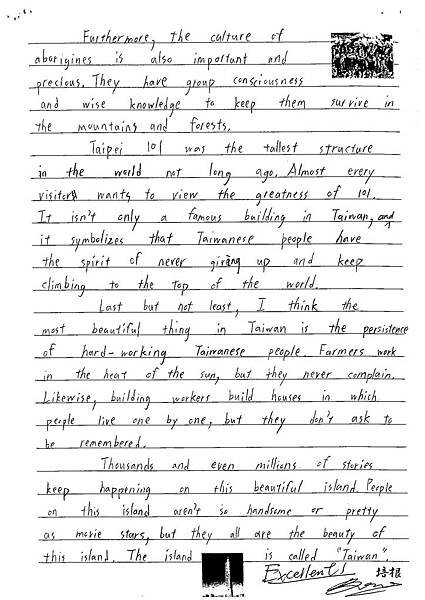 Furthermore, the culture of
aborigines is also important and
precious. They have group consciousness
and wise knowledge to keep them survive in
the mountains and forests.
Taipei 101 was the tallest structure
in the world not long ago. Almost every
visitor wants to view the greatness of 101.
It isn't only a famous building in Taiwan, and
it symbolizes that Taiwanese people have
the spirit of never giving up and keep
climbing to the top of the world.
Last but not least, I think the
most beautiful thing in Taiwan is the persistence
of hard-working Taiwanese people. Farmers work
in the heat of the sun, but they never complain.
Likewise, building workers build houses in which
people live one by one, but they don't ask to
be remembered.
Thousands and even millions of stories
keep happening on this beautiful island. People
on this island aren't so handsome or pretty
as movie stars, but they all are the beauty of
this island. The island is called "Taiwan".
Excellent! 培根